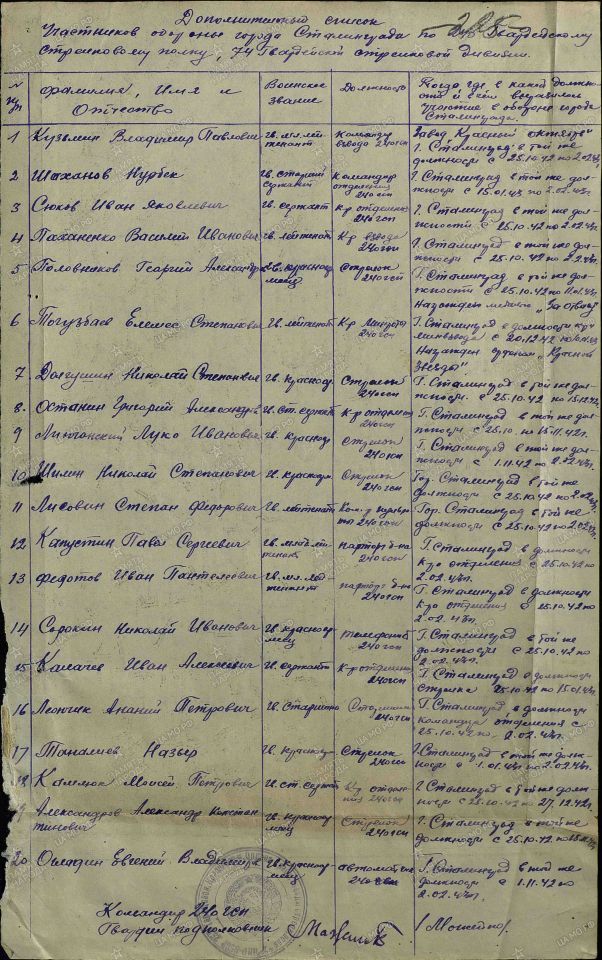 Дополнительный список
Участников обороны города Сталинграда по Гвардейскому
стрелковому полку, 74 Гвардейской стрелковой дивизии.
N
Фамилия, Имя и
Отчество
Воинское
звание
Должность
Когда, где в какой должно
сти
участие в обороне города
Сталинграда.
1 Кузьмин Владимир Павлович гв. мл. лей-
тенант Командир
взвода 240 гсп Завод Красный октябрь
г. Сталинград в той же
должности с 25.10.42 по 2.02.43г
2 Шаханов Нурбек гв. старший
сержант Командир
отделения
240 гсп г. Сталинград в той же дол-
жности с 15.01.43 по 2.02.43г.
3 Сюков Иван Яковлевич гв. сержант к-р отделения
240 гсп г. Сталинград в той же дол-
жности с 25.10.42 по 2.02.43г
4 Паханенко Василий Иванович гв. лейтенант к-р взвода
240 гсп г. Сталинград в той же дол-
жности с 25.10.42 по 2.2.43г.
5 Половников Георгий Александр гв. красноар-
меец Стрелок
240 гсп г. Сталинград в той же дол-
жности с 25.10.42 по 11.01.43г
Награжден медалью "За Отвагу"
6 Тогузбаев Елемес Степанович гв. лейтенант К-р
240 гсп г. Сталинград в должности к-ра
минвзвода с 20.12.42
Награжден орденом "Красная
Звезда"
7 Долгушин Николай Степанович гв. красноар. Стрелок
240 гсп г. Сталинград в той же дол-
жности с 25.10.42 по 15.12.42
8. Останин Григорий Александров гв. ст. сержант к-р отделен
240 гсп Г. Сталинград в той же дол-
жности с 25.10 по 15.11.42г.
9 Луко Иванович гв. красноар Стрелок
240 гсп Г. Сталинград в той же дол-
жности с 1.11.42 по 2.02.43г
10 Шилин Николай Степанович гв. красноарм. Стрелок
240 гсп Гор. Сталинград в той же
должности с 25.10.42 по 2.02.43г
11 Лисовин Степан Федорович гв. лейтенант Ком-р
240 гсп Гор. Сталинград в той же
должности с 25.10.42 по 2.02.43г
12 Капустин Павел Сергеевич гв. мл. лей-
тенант парторг б-на
240 гсп Г. Сталинград в должности
К-ра отделения с 25.10.42 по
2.02.43г.
13 Федотов Иван Пантелеевич гв. мл. лей-
тенант парторг б-на
240 гсп Г. Сталинград в должности
К-ра отделения с 25.10.42 по
2.02.43г
14 Сорокин Николай Иванович гв. красноар-
меец телефонист
240 гсп Г. Сталинград в той же
должности с 25.10.42 по
2.02.43г.
15 Калачев Иван Алексеевич гв. сержант К-р отделения
240 гсп Г. Сталинград в должности
Стрелка 25.10.42 по 15.01.43г
16 Ананий Петрович гв. Старшина Старшина
240 гсп Г. Сталинград в должности
командира отделения с
25.10.42 по 2.02.43г
17 Тоналиев Назыр гв. красноар Стрелок
240 гсп Г. Сталинград в той же долж-
ности с 1.01.43г по 2.02.43г.
18 Каллюк Моисей Петрович гв. ст. сержант К-р отделе-
ния 240 гсп Г. Сталинград в той же долж-
ности с 25.10.42 по 27.12.42г
19 Александров Александр Констан
тинович гв. красноар
меец Стрелок
240 гсп Г. Сталинград в той же
должности с 25.10.42
20 Евгений Владимиров гв. красноар-
меец автоматчик
240 гсп г. Сталинград в той же
должности с 1.11.42 по
2.02.43г.
Командир 240 гсп
Гвардии подполковник